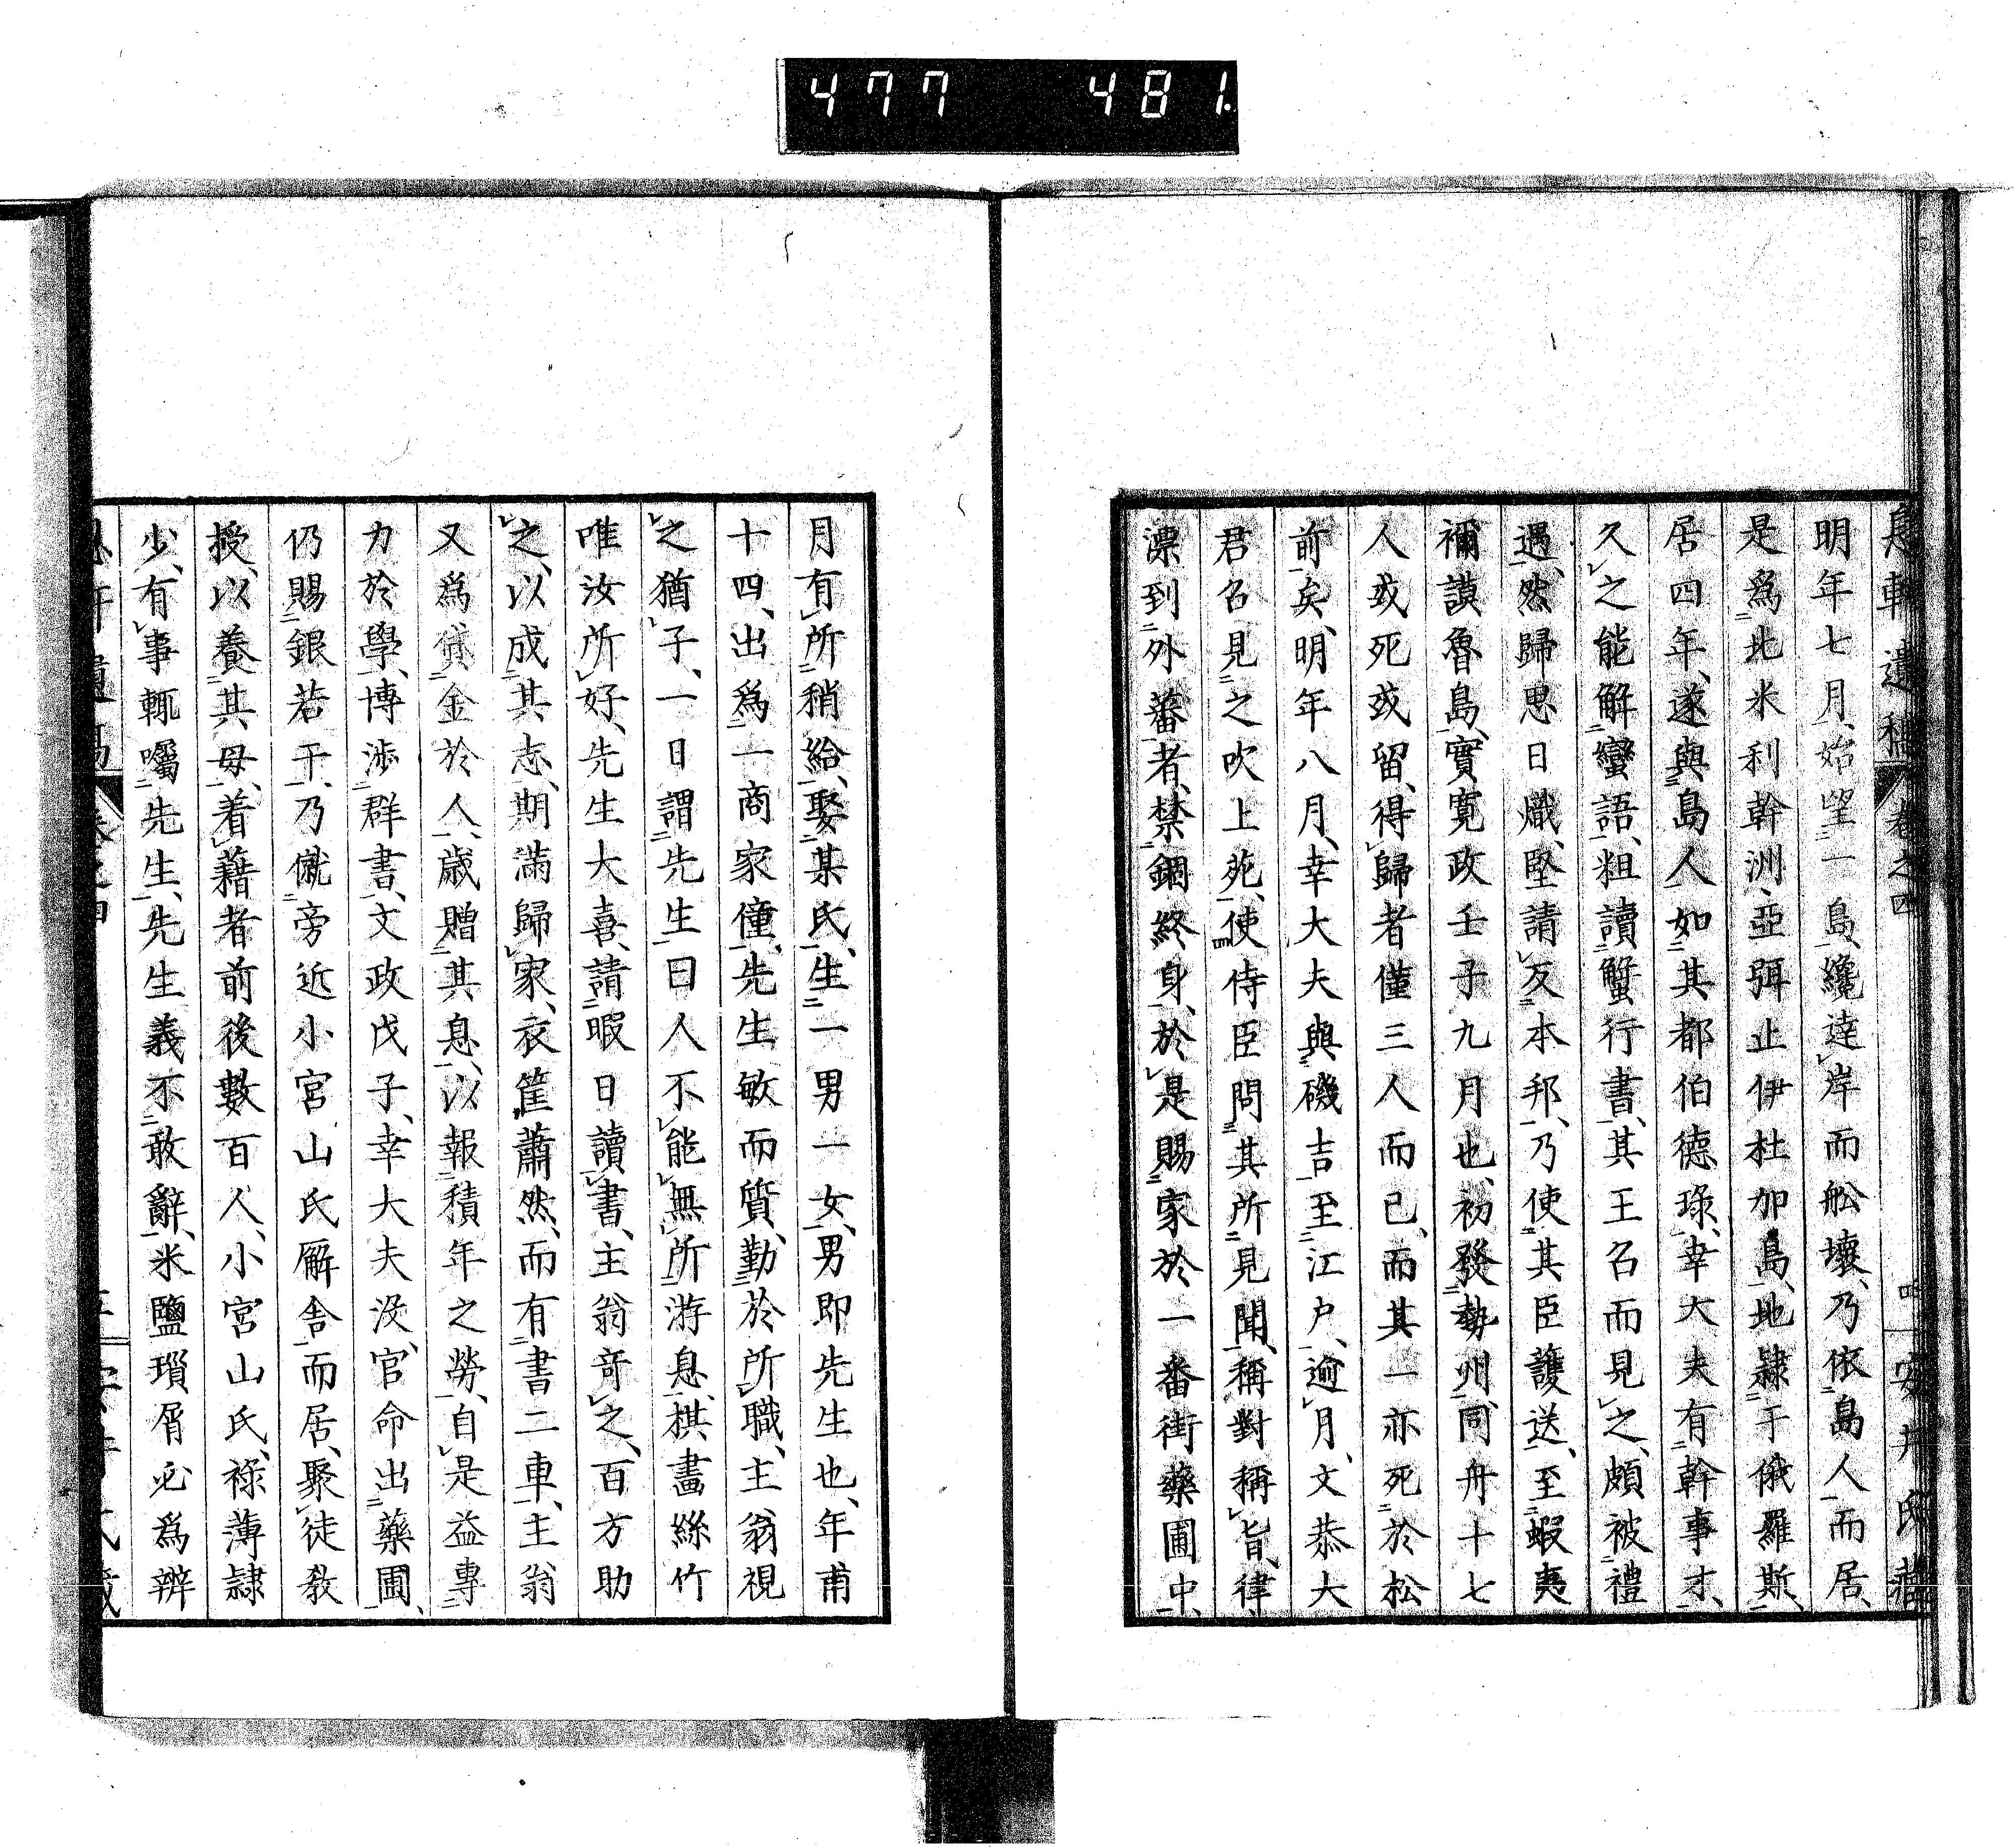 477 481.
息軒遺稿 卷之四 四 安井氏藏
明年七月、始望一島、纔達岸而舩壞、乃依島人而居、
是爲北米利幹洲、亞弭止伊杜加島、地隷于俄羅斯、
居四年、遂與島人如其都伯德琭、幸大夫有幹事才、
久之能解蠻語、粗讀蟹行書、其王召而見之、頗被禮
遇、然歸思日熾、堅請反本邦、乃使其臣護送、至蝦夷
禰謨魯島、實寛政壬子九月也、初發勢州、同舟十七
人或死或留、得歸者僅三人而已、而其一亦死於松
前矣、明年八月、幸大夫與磯吉至江户、逾月、文恭大
君召見之吹上苑、使侍臣問其所見聞、稱對稱旨、律、
漂到外蕃者、禁錮終身、於是賜家於一番街藥圃中、
月有所稍給、娶某氏、生一男一女、男即先生也、年甫
十四、出爲一商家僮、先生敏而質、勤於所職、主翁視
之猶子、一日謂先生曰人不能無所游息、棋畫絲竹
唯汝所好、先生大喜、請暇日讀書、主翁竒之、百方助
之、以成其志、期滿歸家、衣筐蕭然、而有書二車、主翁
又爲貸金於人、歳贈其息、以報積年之勞、自是益專
力於學、博渉群書、文政戊子、幸大夫没、官命出藥圃、
仍賜銀若干、乃僦旁近小宮山氏廨舎而居、聚徒敎
授、以養其母、着藉者前後數百人、小宮山氏、祿薄隷
少、有事輒囑先生、先生義不敢辭、米鹽瑣屑必爲辨